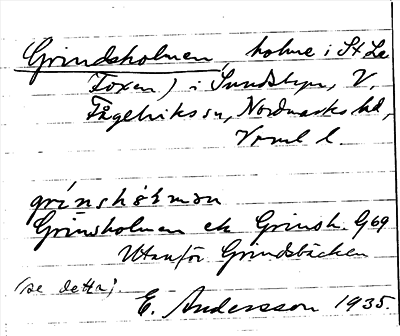 Grindsholmen, holme i St Le
Foxen) i Sundsbyn, V.
Fågelviks sn, Nordmarks hd,
Vrml l.
grínshòlmən
Grinsholmen ek Grinsh. G69
Utanför Grindsbäcken
(se detta;
E. Andersson 1935.